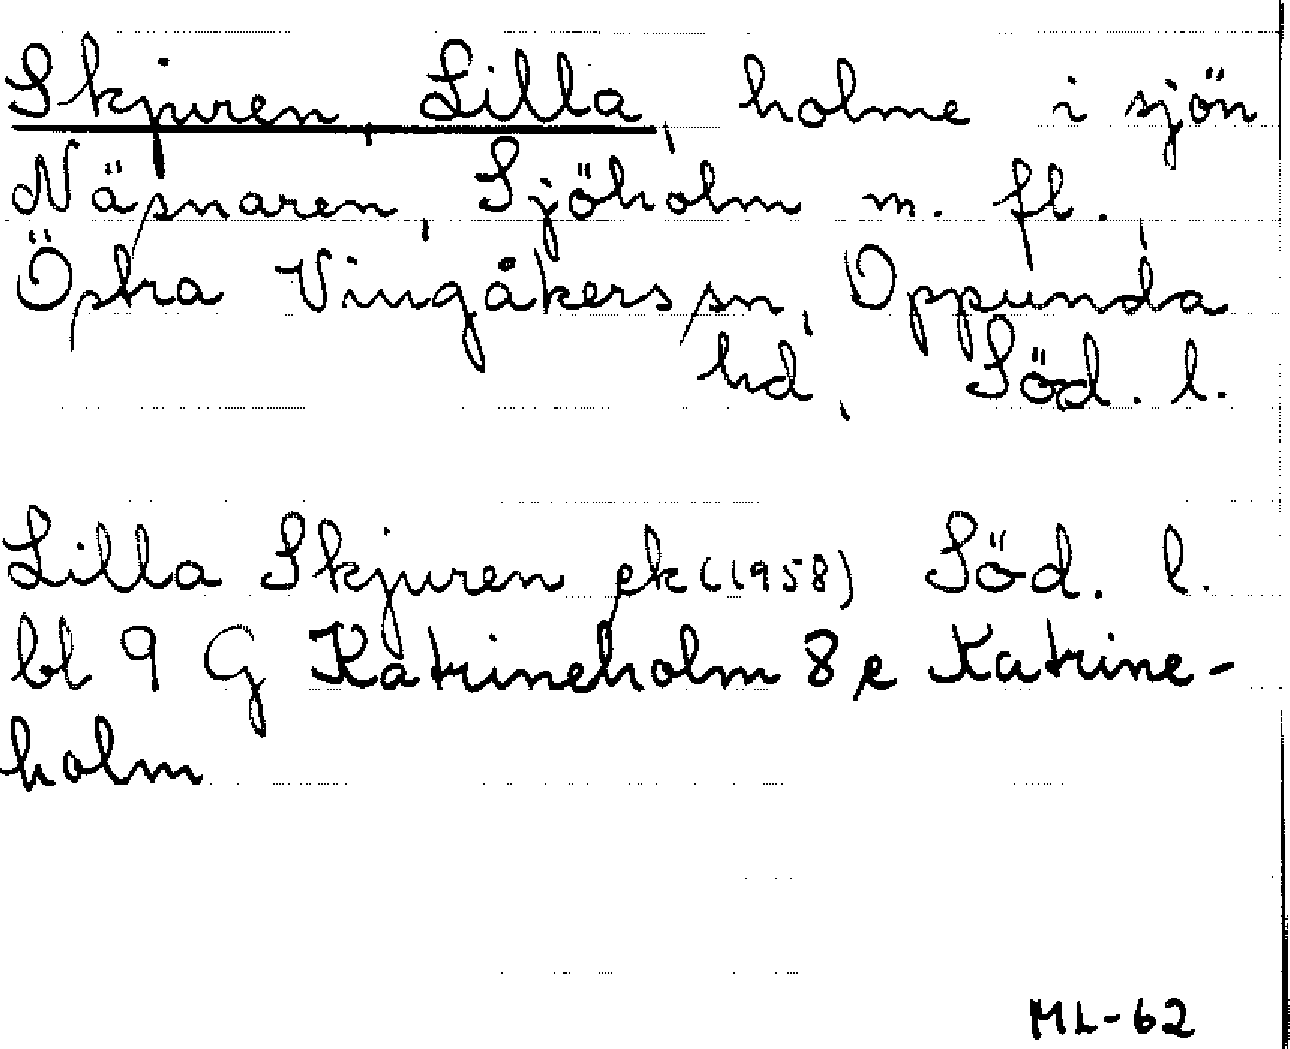 Skjuren, Lilla, holme i sjön
Näsnaren, Sjöholm m. fl.,
Östra Vingåkers sn, Oppunda
hd, Söd. l.
Lilla Skjuren ek (1958) Söd. l.
bl 9 G Katrineholm 8 e Katrine-
holm
ML-62